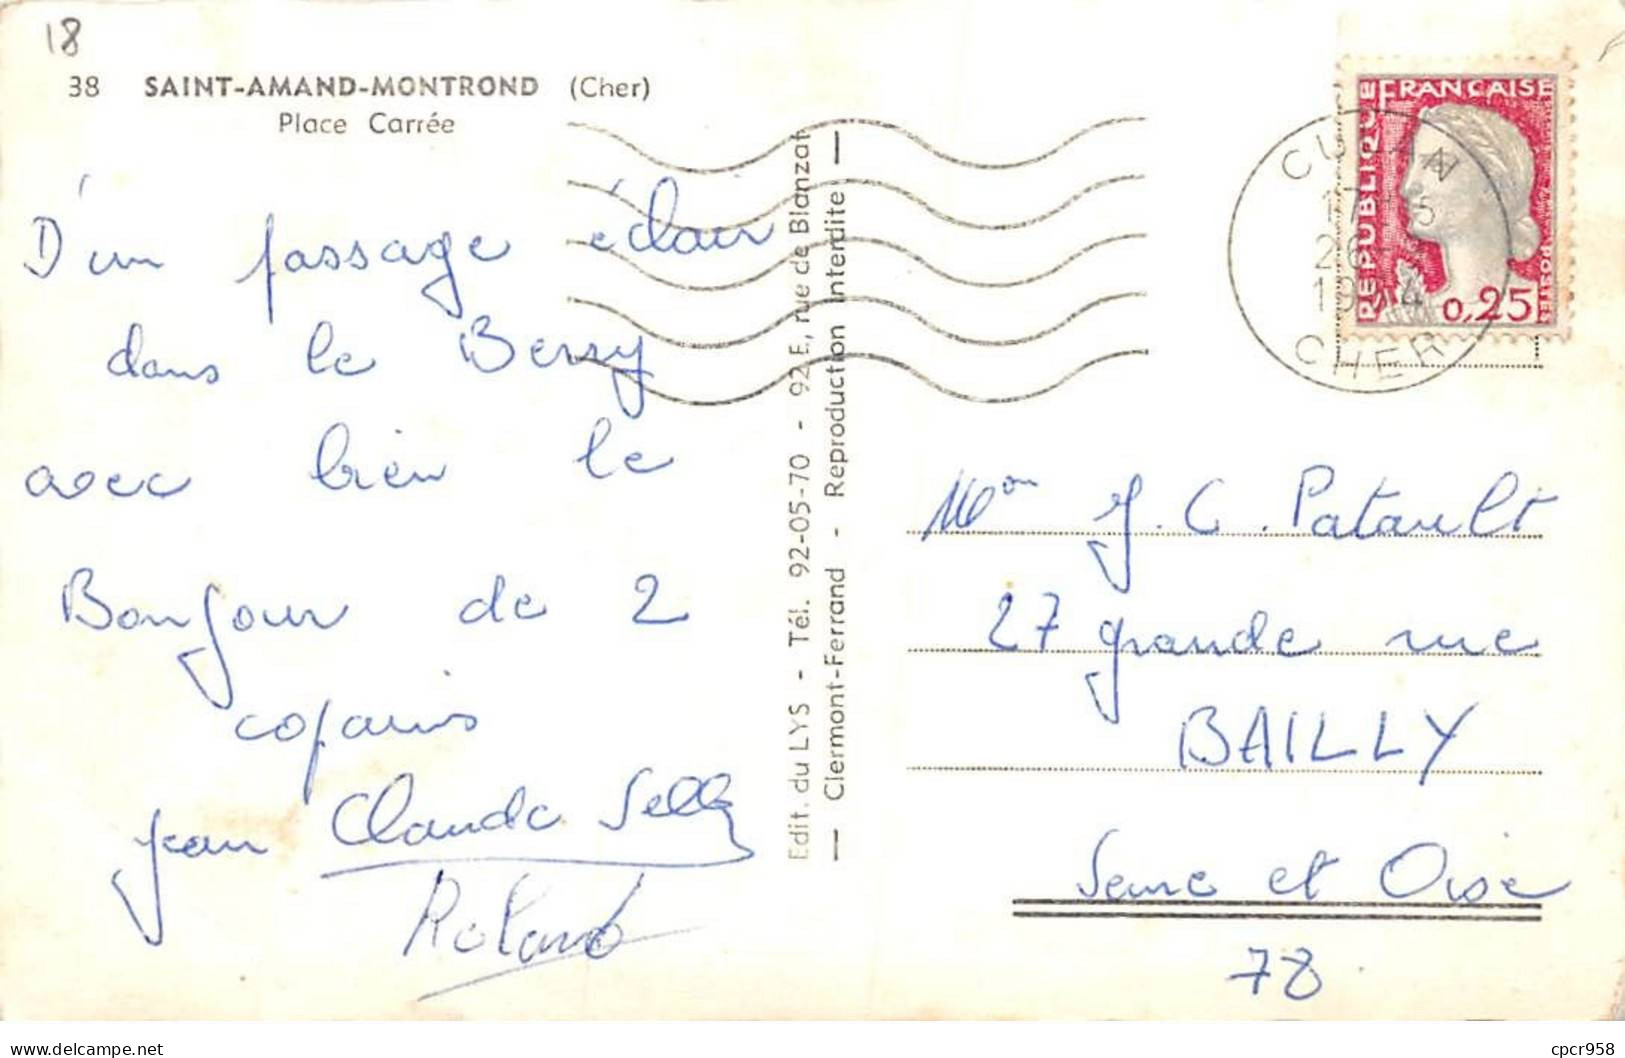 18
38 SAINT-AMAND-MONTROND (Cher)
Place Carrée
D'un passage éclair
dans le Berry
avec bien le
Bonjour de 2
copains
Jean Claude
Roland
Edit. du LYS - Tél. 92-05-70 - 92 E, rue de Blanzat
— Clermont-Ferrand - Reproduction Interdite —
REPUBLIQUE FRANÇAISE
0,25
POSTES
CULAN
CHER
Mon J. C. Patault
27 grande rue
BAILLY
Seine et Oise
78
delcampe.net
cpcr958